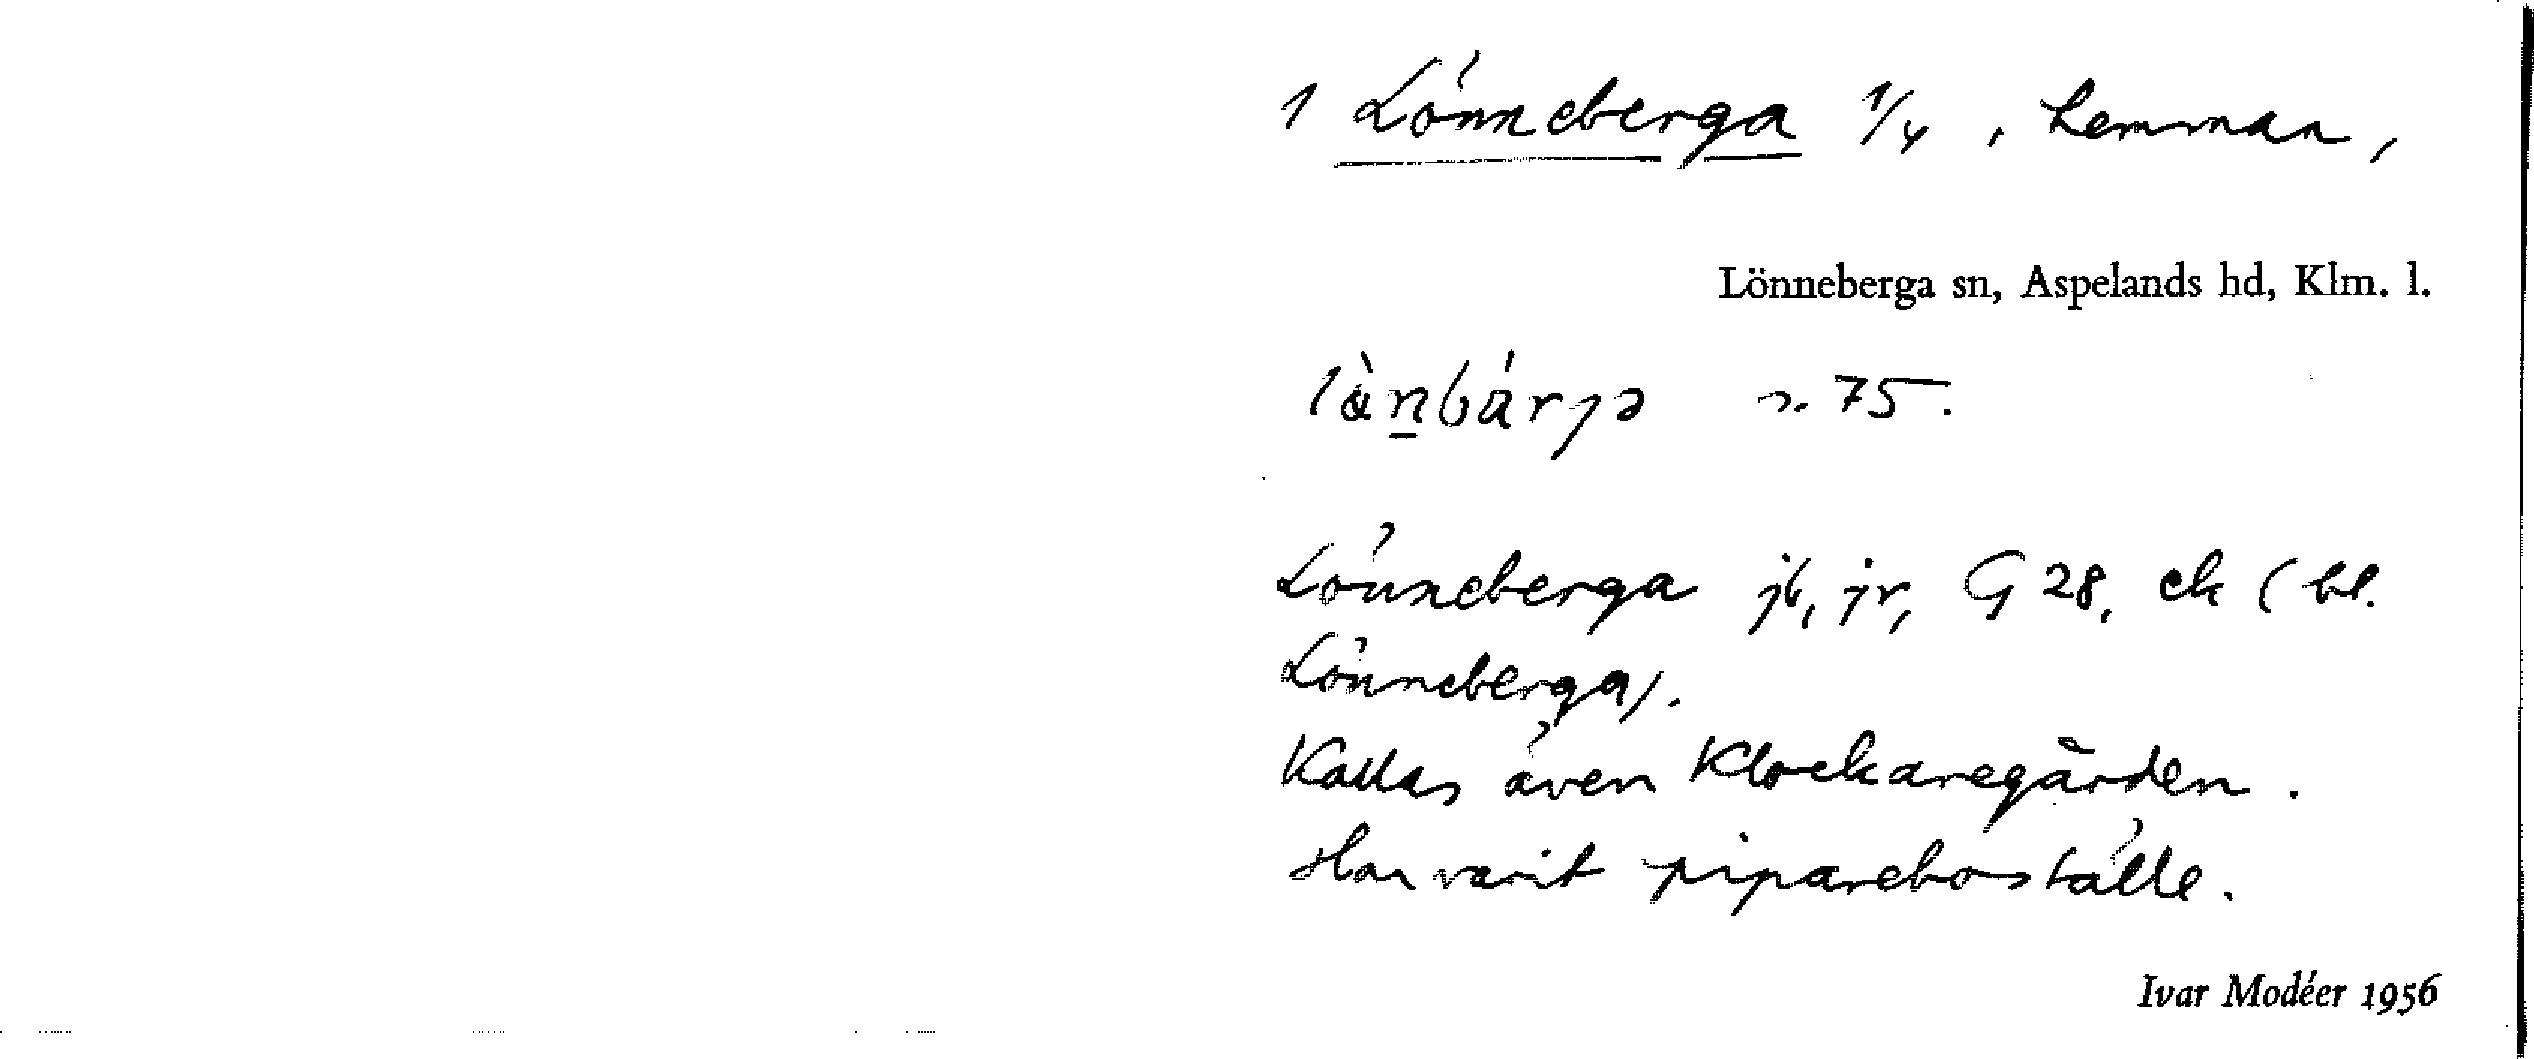 1 Lönneberga 1/4, hemman,
Lönneberga sn, Aspelands hd, Klm. l.
75.
Lönneberga jb, jr, G 28, ek (bl.
Lönneberga).
Kallas även Klockaregården.
Har varit pipareboställe.
Ivar Modéer 1956